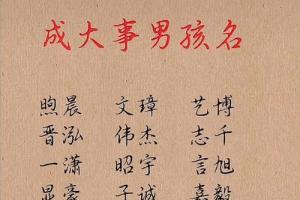 成大事男孩名
煦晨 文璋 艺博
晋泓 伟杰 志千
一潇 昭宇 言旭
显豪 子诚 嘉毅